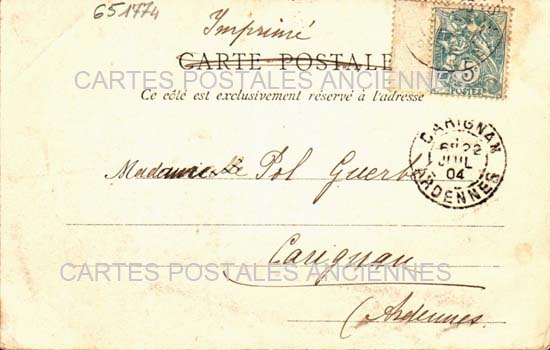 651774
Imprimé
CARTE POSTALE
CARTES POSTALES ANCIENNES
Ce côté est exclusivement réservé à l'adresse
5
POSTES
CARIGNAN
6E 22
JUIL
04
ARDENNES
Pol Guerbe
Carignan
CARTES POSTALES ANCIENNES
(Ardennes